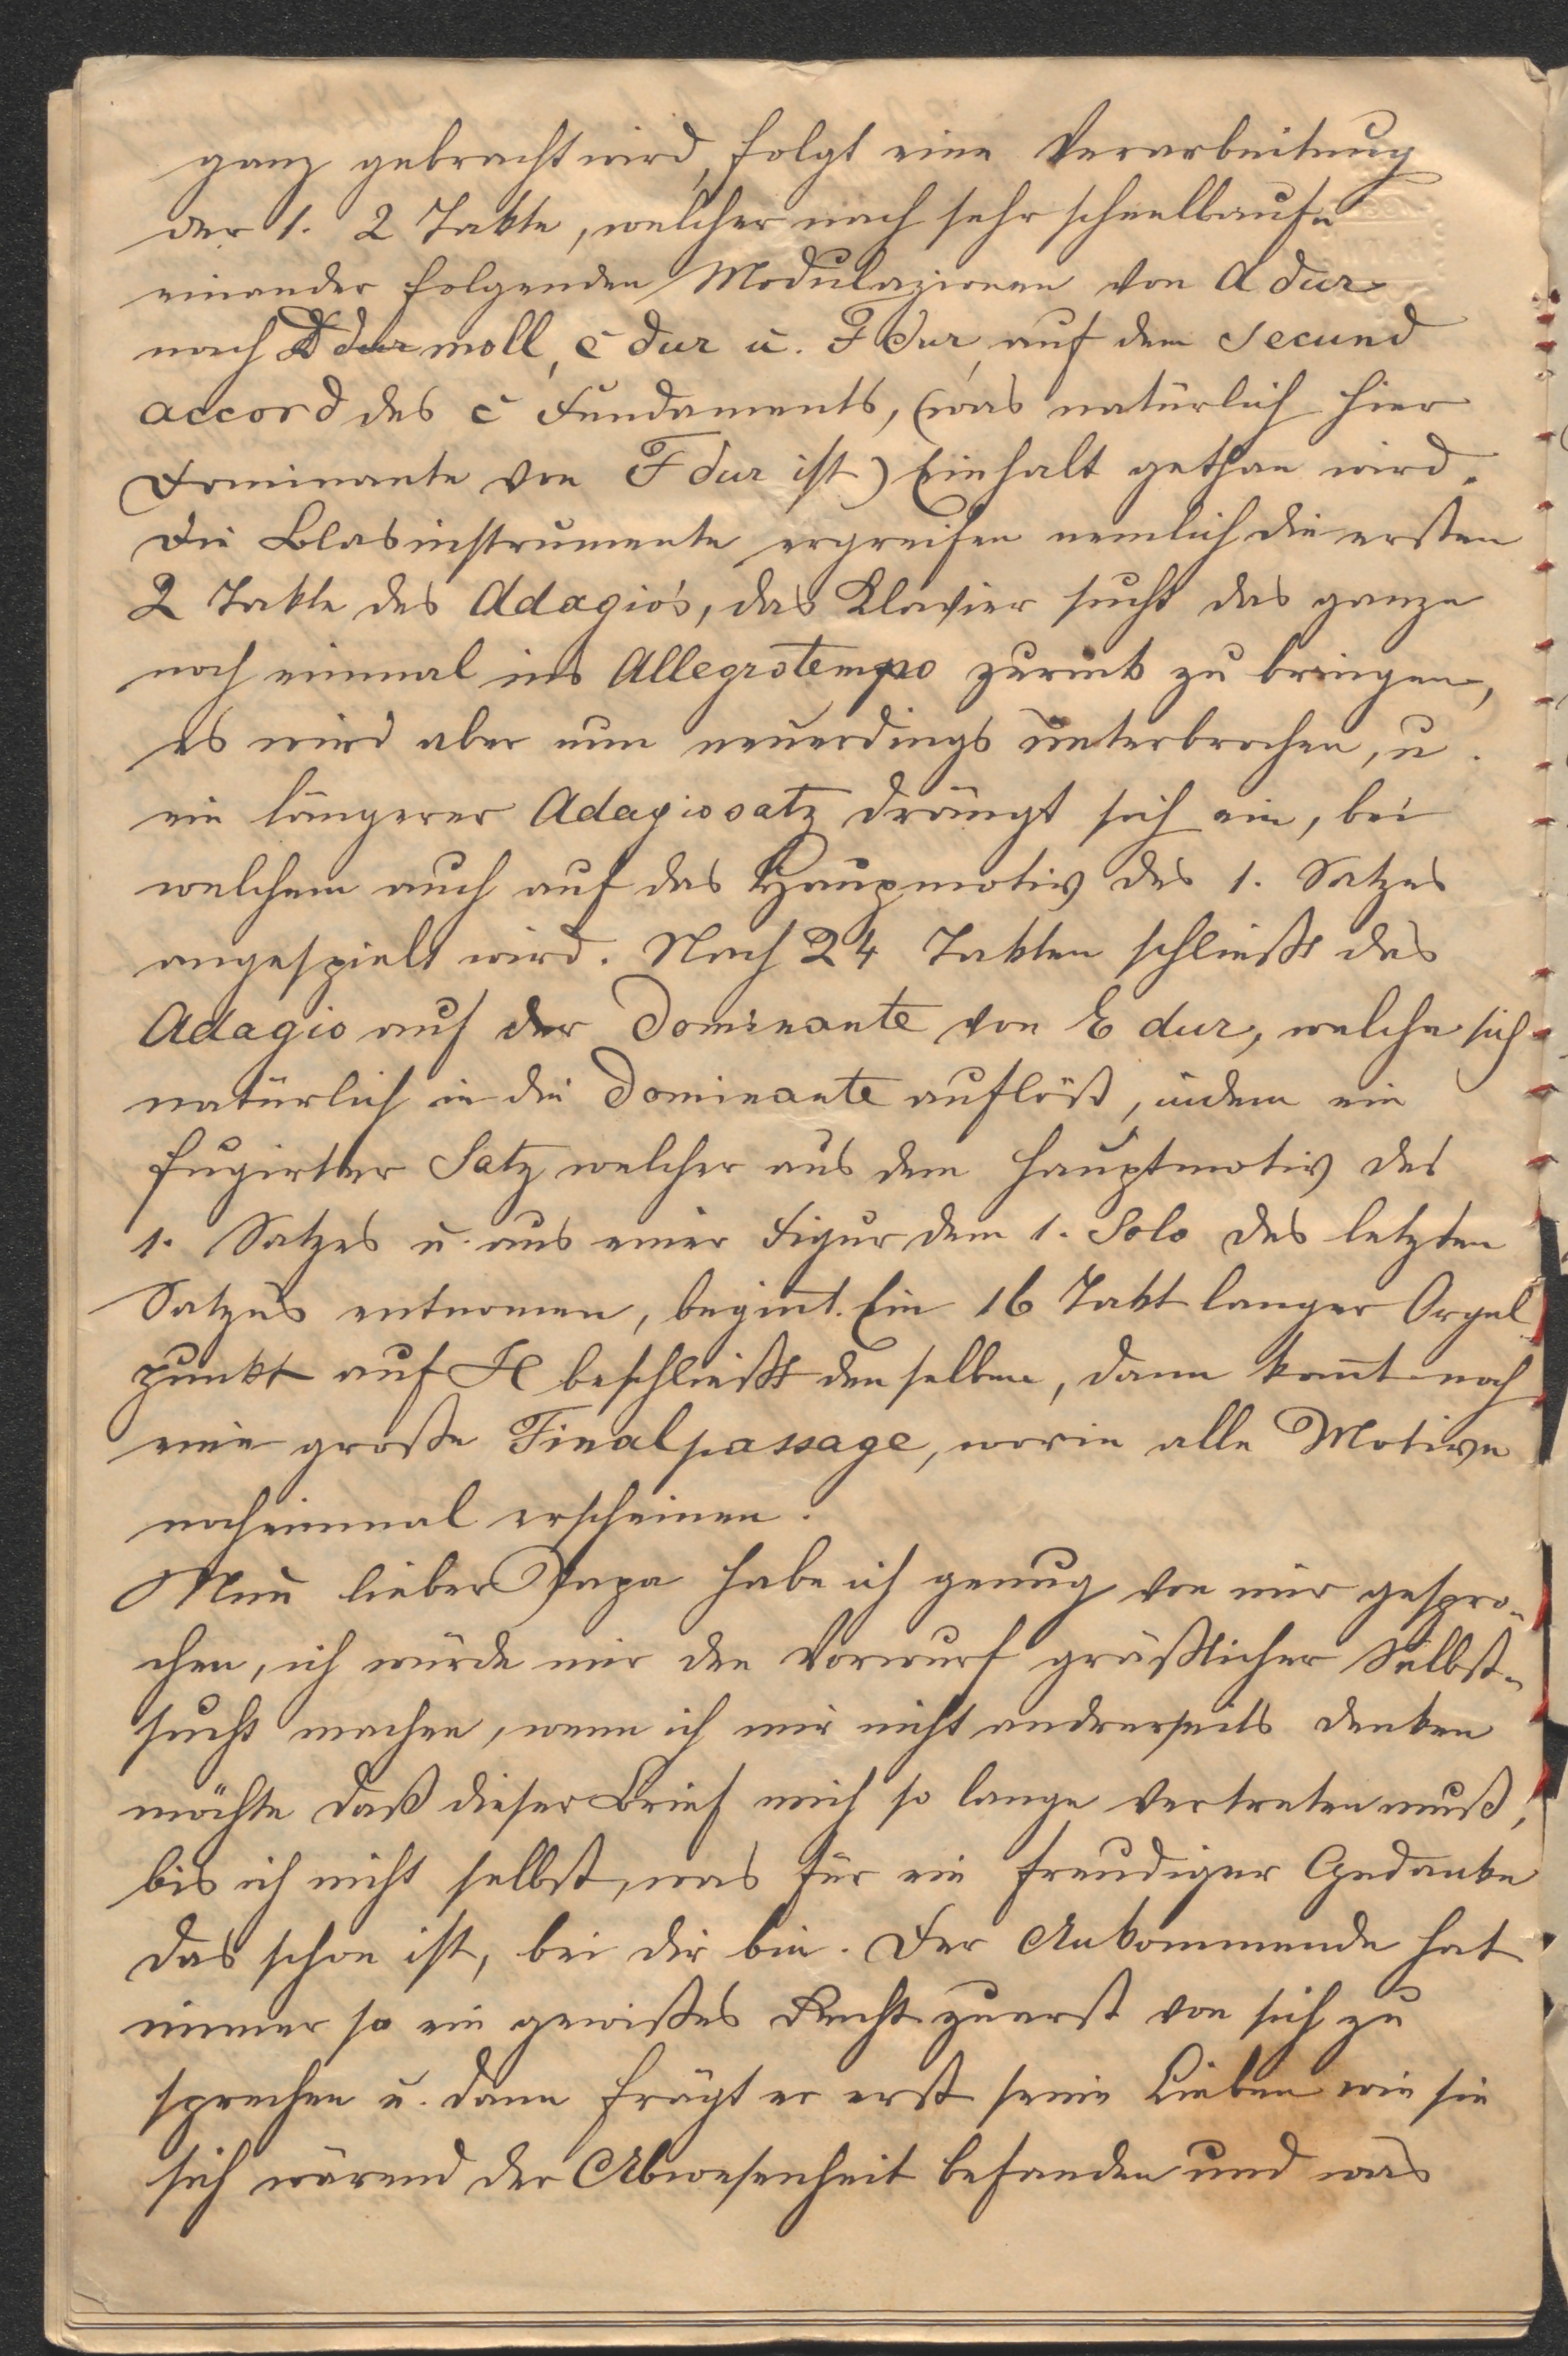 ganz gebracht wird, folgt eine Verarbeitung
der 1. 2 Takte, welcher nach sehr schnellauf-
einander folgenden Modulazionen von A dur
nach D dur moll, C dur u. F dur, auf dem Secund
accord des C Fundaments, (was natürlich hier
Dominante von F dur ist) Einhalt gethan wird.
Die Blasinstrumente ergreifen nemlich die ersten
2 Takte des Adagio's, das Klavier sucht das ganze
noch einmal ins Allegrotempo zurück zu bringen,
es wird aber nun neuerdings unterbrochen, u.
ein längerer Adagiosatz drängt sich ein, bei
welchem auch auf das Haupmotiv des 1. Satzes
angespielt wird. Nach 24 Takten schließt das
Adagio auf der Dominante von E dur, welche sich
natürlich in die Dominante auflößt, indem ein
fugirter Satz welcher aus dem Hauptmotiv des
1. Satzes u. aus einer Figur dem 1. Solo des letzten
Satzes entnomen, begint. Ein 16 Takt langer Orgel
punkt auf H beschließt denselben, dann komt noch
eine große Finalpassage, worin alle Motive
nocheinmal erscheinen.
Nun lieber Papa habe ich genug von mir gespro-
chen, ich würde mir den Vorwurf gräßlicher Selbst-
sucht machen, wenn ich mir nicht andrerseits denken
möchte daß dieser Brief mich so lange vertreten muß,
bis ich nicht selbst, was für ein freudiger Gedanke
das schon ist, bei dir bin. Der Ankommende hat
immer so ein gewißes Recht zuerst von sich zu
sprechen u. dann frägt er erst seine Lieben wie sie
sich wärend der Abwesenheit befanden und was